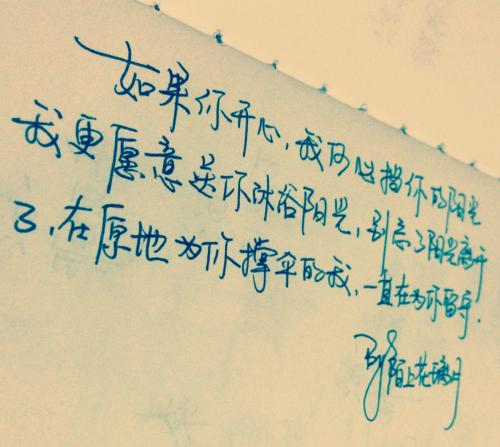 如果你开心,我何必挡你的阳光
我更愿意送你沐浴阳光,别忘了阳光离开
了,在原地为你撑伞的我,一直在为你留守.
By陌上花璃月